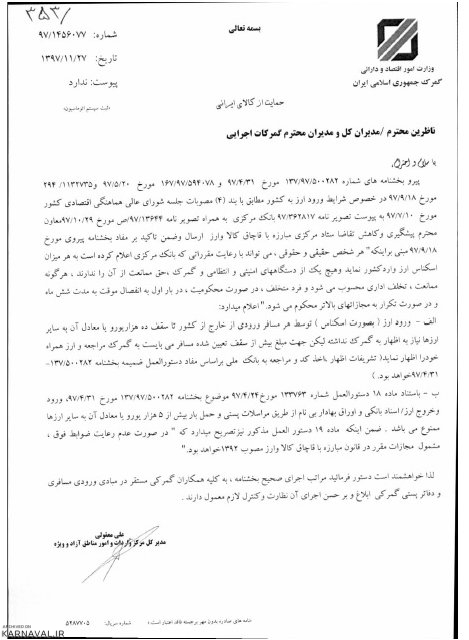 ۳۵۳/
بسمه تعالی
شماره: ۹۷/۱۴۵۶۰۷۷
تاریخ: ۱۳۹۷/۱۱/۲۷
پیوست: ندارد
وزارت امور اقتصاد و دارائی
گمرک جمهوری اسلامی ایران
حمایت از کالای ایرانی
ناظرین محترم /مدیران کل و مدیران محترم گمرکات اجرایی
با سلام و احترام
پیرو بخشنامه های شماره ۱۳۷/۹۷/۵۰۰۲۸۲ مورخ ۹۷/۴/۳۱ و ۱۶۷/۹۷/۵۹۴۰۷۸ مورخ ۹۷/۵/۲۰ و ۲۹۴/۱۱۳۲۷۳۵
مورخ ۹۷/۹/۱۸ در خصوص شرایط ورود ارز به کشور مطابق با بند (۴) مصوبات جلسه شورای عالی هماهنگی اقتصادی کشور
مورخ ۹۷/۷/۱۰ به پیوست تصویر نامه ۹۷/۳۶۲۸۱۷ بانک مرکزی ـ به همراه تصویر نامه ۹۷/۱۳۶۴۴/ص مورخ ۹۷/۱۰/۲۹معاون
محترم پیشگیری وکاهش تقاضا ستاد مرکزی مبارزه با قاچاق کالا وارز ارسال وضمن تاکید بر مفاد بخشنامه پیروی مورخ
۹۷/۹/۱۸ مبنی براینکه" هر شخص حقیقی و حقوقی ، می تواند با رعایت مقرراتی که بانک مرکزی اعلام کرده است به هر میزان
اسکناس ارز واردکشور نماید وهیچ یک از دستگاههای امنیتی و انتظامی و گمرک ،حق ممانعت از آن را ندارند ، هرگونه
ممانعت ، تخلف اداری محسوب می شود و فرد متخلف ، در صورت محکومیت ، در بار اول به انفصال موقت به مدت شش ماه
و در صورت تکرار به مجازاتهای بالاتر محکوم می شود." اعلام میدارد:
الف - ورود ارز ( بصورت اسکناس ) توسط هر مسافر ورودی از خارج از کشور تا سقف ده هزاریورو یا معادل آن به سایر
ارزها نیاز به اظهار به گمرک نداشته لیکن جهت مبلغ بیش از سقف تعیین شده مسافر می بایست به گمرک مراجعه و ارز همراه
خودرا اظهار نماید( تشریفات اظهار ،اخذ کد و مراجعه به بانک ملی براساس مفاد دستورالعمل ضمیمه بخشنامه ۱۳۷/۵۰۰۲۸۲-
۹۷/۴/۳۱خواهد بود. )
ب - باستناد ماده ۱۸ دستورالعمل شماره ۱۳۳۷۶۳ مورخ۹۷/۴/۲۴ موضوع بخشنامه ۱۳۷/۹۷/۵۰۰۲۸۲ مورخ ۹۷/۴/۳۱، ورود
وخروج ارز/ اسناد بانکی و اوراق بهادار بی نام از طریق مراسلات پستی و حمل بار بیش از ۵ هزار یورو یا معادل آن به سایر ارزها
ممنوع می باشد . ضمن اینکه ماده ۱۹ دستورالعمل مذکور نیزتصریح میدارد که " در صورت عدم رعایت ضوابط فوق ،
مشمول مجازات مقرر در قانون مبارزه با قاچاق کالا وارز مصوب ۱۳۹۲خواهد بود."
لذا خواهشمند است دستور فرمائید مراتب اجرای صحیح بخشنامه ، به کلیه همکاران گمرکی مستقر در مبادی ورودی مسافری
و دفاتر پستی گمرکی ابلاغ و بر حسن اجرای آن نظارت وکنترل لازم معمول دارند .
علی معقولی
مدیر کل مرکز واردات و امور مناطق آزاد و ویژه
نامه های صادره بدون مهر برجسته فاقد اعتبار است ؛
شماره سریال: ۵۴۸۷۷۰۵
KARNAVAL.IR